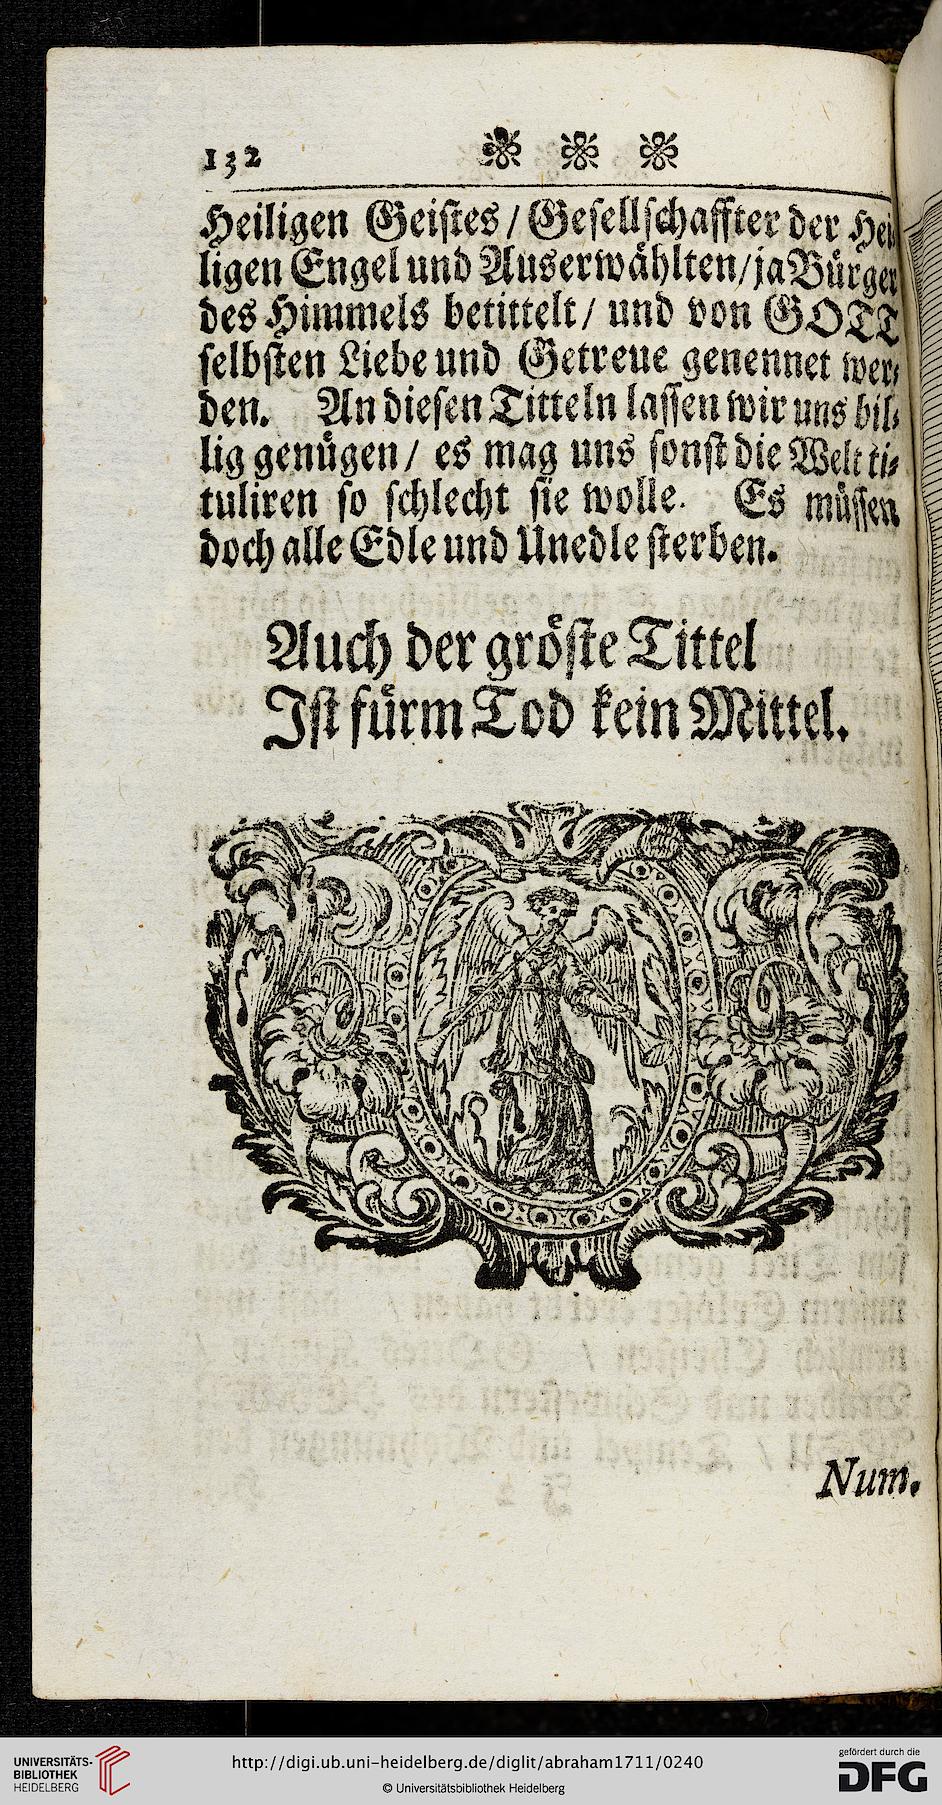 132
Heiligen Geistes / Gesellschaffter der Hei-
ligen Engel und Auserwählten / ja Bürger
des Himmels betittelt / und von GOTT
selbsten Liebe und Getreue genennet wer-
den. An diesen Titteln lassen wir uns bil-
lig genügen / es mag uns sonst die Welt ti-
tuliren so schlecht sie wolle. Es müssen
doch alle Edle und Unedle sterben.
Auch der gröste Tittel
Ist fürm Tod kein Mittel.
Num.
UNIVERSITÄTS-
BIBLIOTHEK
HEIDELBERG
http://digi.ub.uni-heidelberg.de/diglit/abraham1711/0240
© Universitätsbibliothek Heidelberg
gefördert durch die
DFG